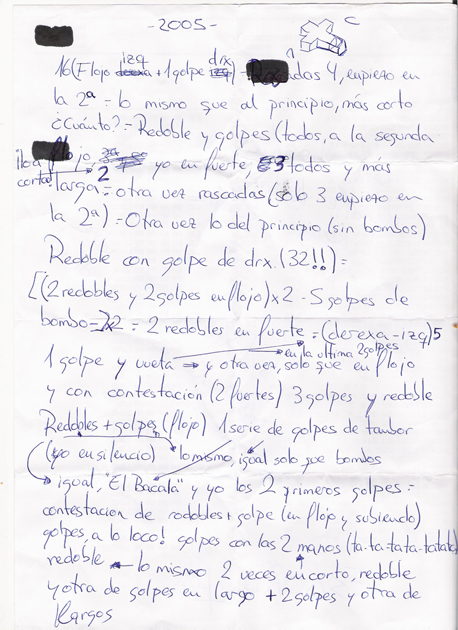 -2005-
c
izq drx
16(Flojo + 1golpe ) = Rascadas 4, empiezo en
la 2ª = lo mismo que al principio, más corto
¿Cuánto? = Redoble y golpes (todos, a la segunda
flojo, yo en fuerte, 3 todos y más
corta! 2
larga = otra vez rascadas (sólo 3 empiezo en
la 2ª) = Otra vez lo del principio (sin bombos)
Redoble con golpe de drx. (32!!) =
[(2 redobles y 2 golpes en flojo)x2 - 5 golpes de
bombo-]x2 = 2 redobles en fuerte = (derexa-izq)5
en la última 2 golpes
1 golpe y vuelta → y otra vez, solo que en flojo
y con contestación (2 fuertes) 3 golpes y redoble
Redobles + golpes (flojo) 1 serie de golpes de tambor
(yo en silencio) lo mismo, igual solo que bombos
igual, "El Bacalá" y yo los 2 primeros golpes =
contestacion de rodobles + golpe (en flojo y subiendo)
golpes, a lo loco! golpes con las 2 manos (ta-ta-tata-tatata)
redoble ← lo mismo 2 veces en corto, redoble
y otra de golpes en largo + 2 golpes y otra de
largos